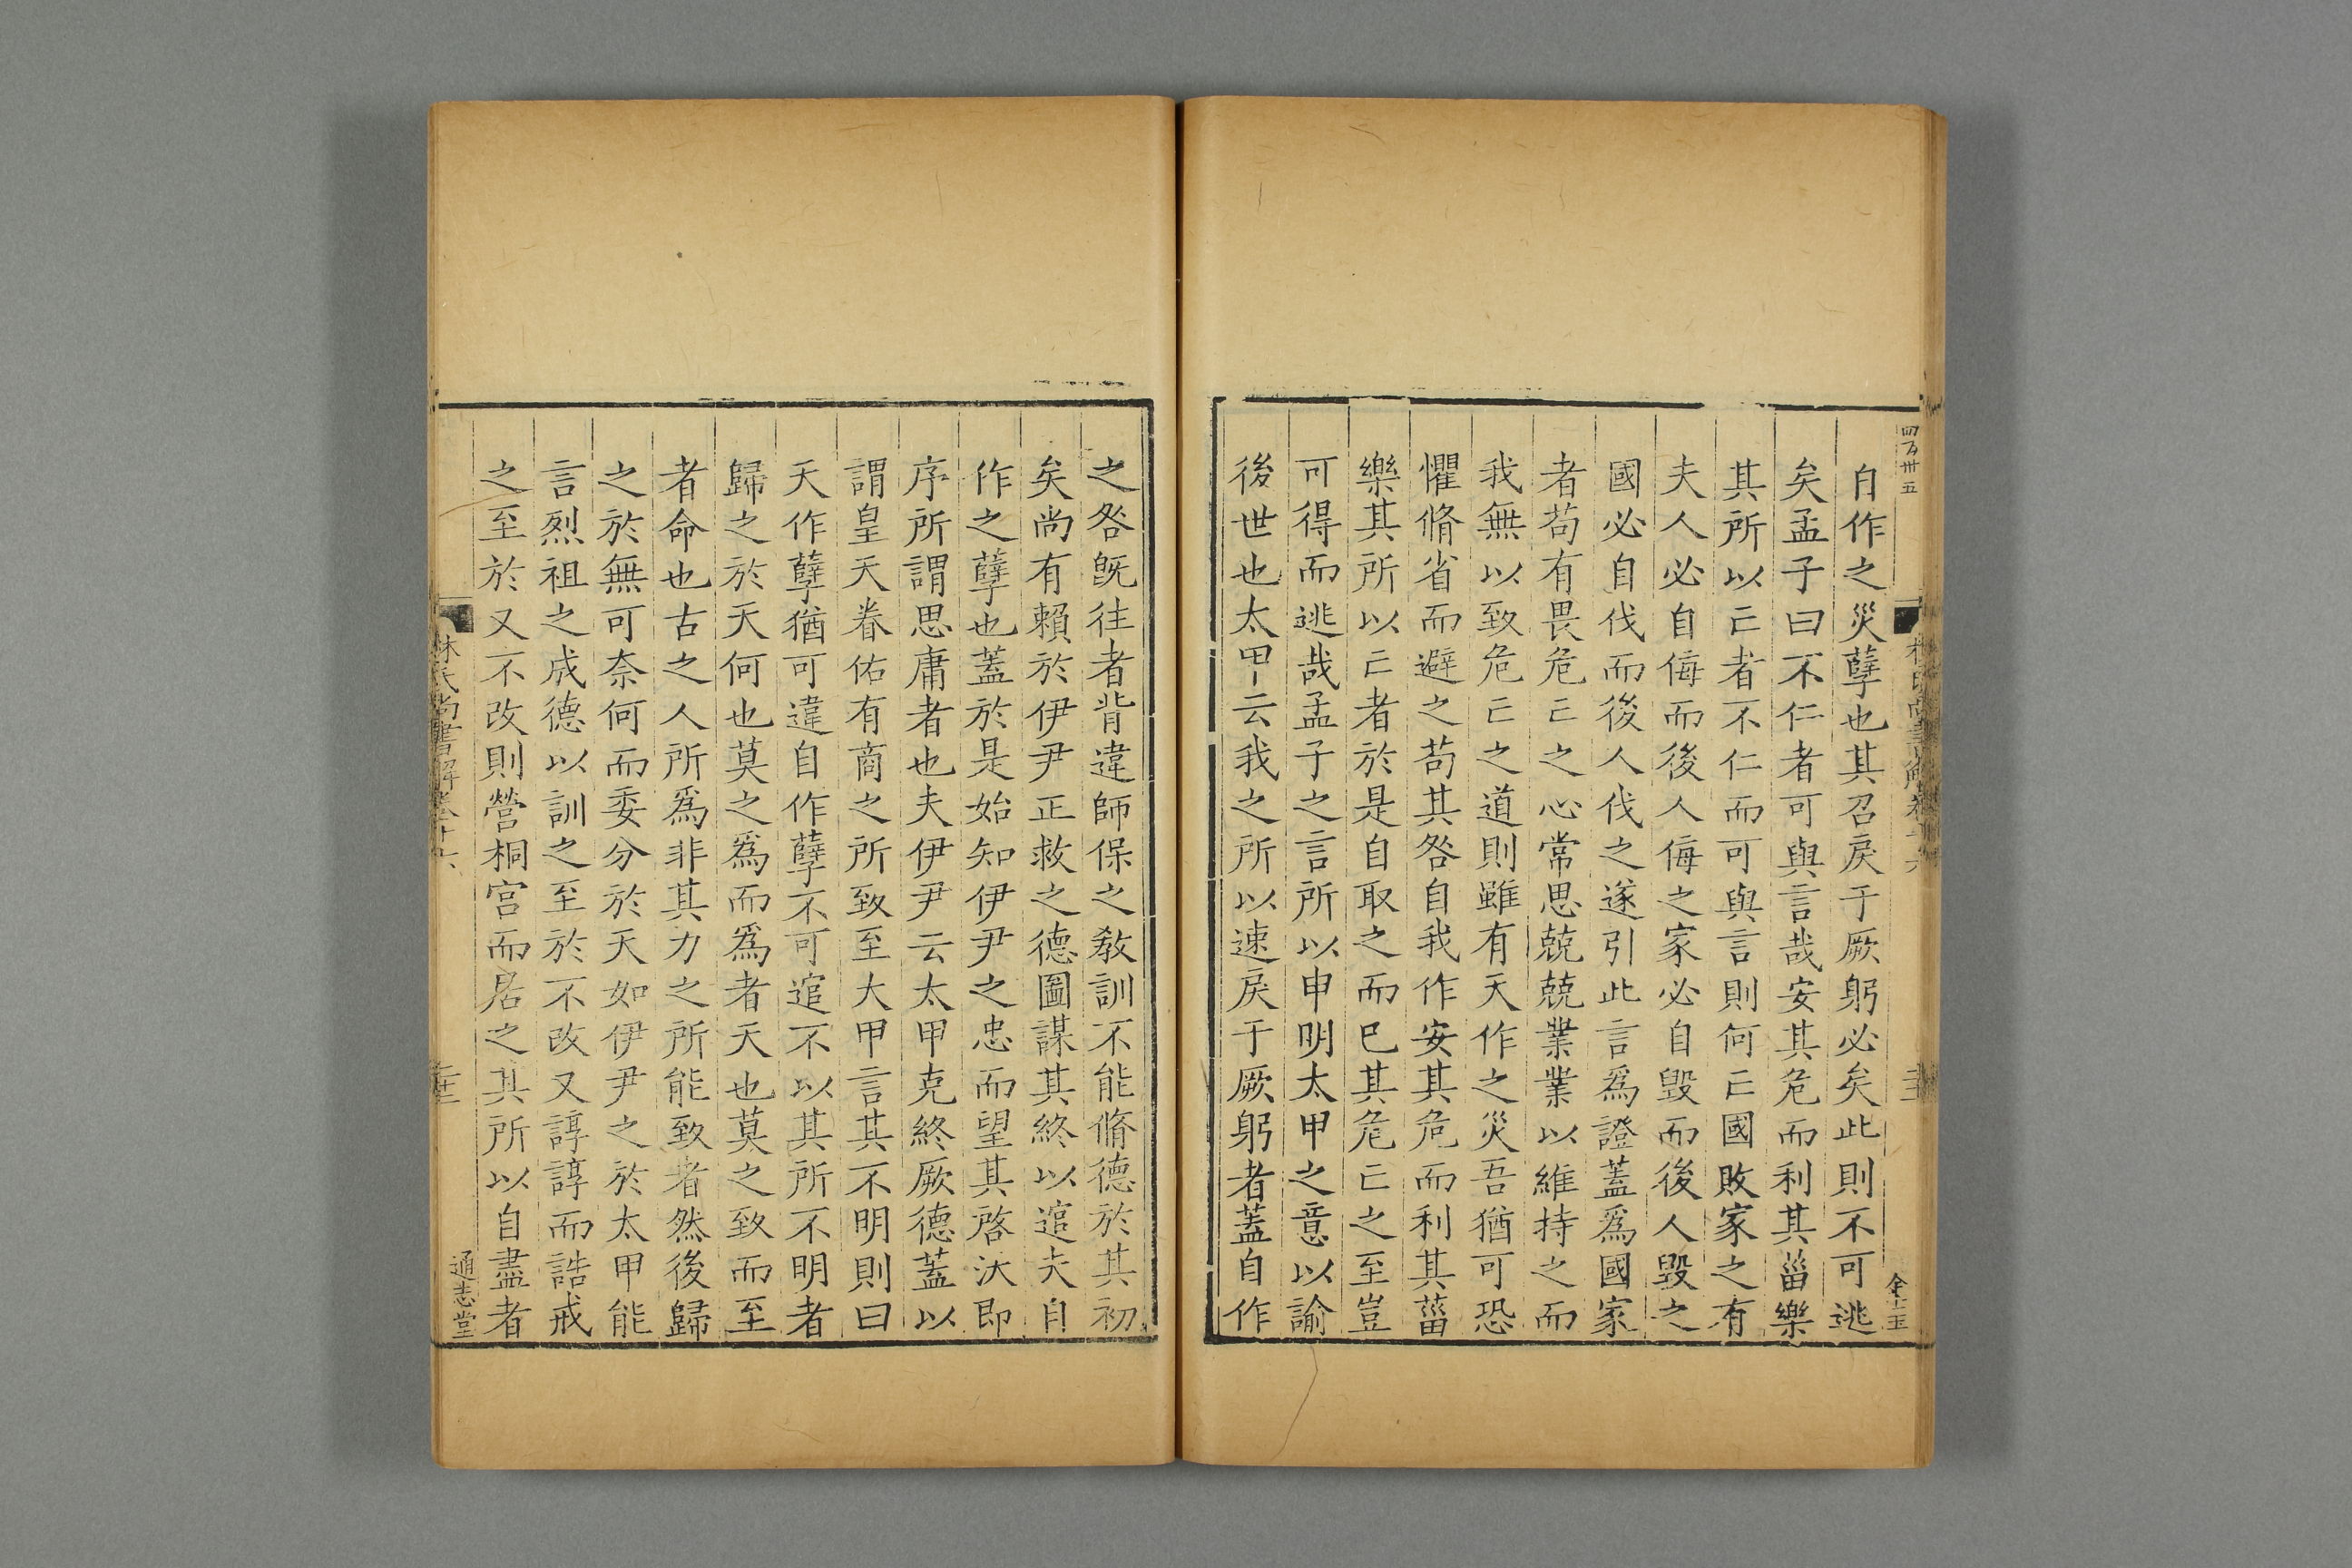 四百卅五
林氏尚書解卷十六
全玉
自作之災孽也其召戾于厥躬必矣此則不可逃
矣孟子曰不仁者可與言哉安其危而利其菑樂
其所以亡者不仁而可與言則何亡國敗家之有
夫人必自侮而後人侮之家必自毀而後人毀之
國必自伐而後人伐之遂引此言爲證蓋爲國家
者苟有畏危亡之心常思兢兢業業以維持之而
我無以致危亡之道則雖有天作之災吾猶可恐
懼脩省而避之苟其咎自我作安其危而利其菑
樂其所以亡者於是自取之而已其危亡之至豈
可得而逃哉孟子之言所以申明太甲之意以諭
後世也太甲云我之所以速戾于厥躬者蓋自作
之咎旣往者背違師保之敎訓不能脩德於其初
矣尚有賴於伊尹正救之德圖謀其終以逭夫自
作之孽也蓋於是始知伊尹之忠而望其啓沃即
序所謂思庸者也夫伊尹云太甲克終厥德蓋以
謂皇天眷佑有商之所致至大甲言其不明則曰
天作孽猶可違自作孽不可逭不以其所不明者
歸之於天何也莫之爲而爲者天也莫之致而至
者命也古之人所爲非其力之所能致者然後歸
之於無可奈何而委分於天如伊尹之於太甲能
言烈祖之成德以訓之至於不改又諄諄而誥戒
之至於又不改則營桐宮而居之其所以自盡者
林氏尚書解卷十六
通志堂